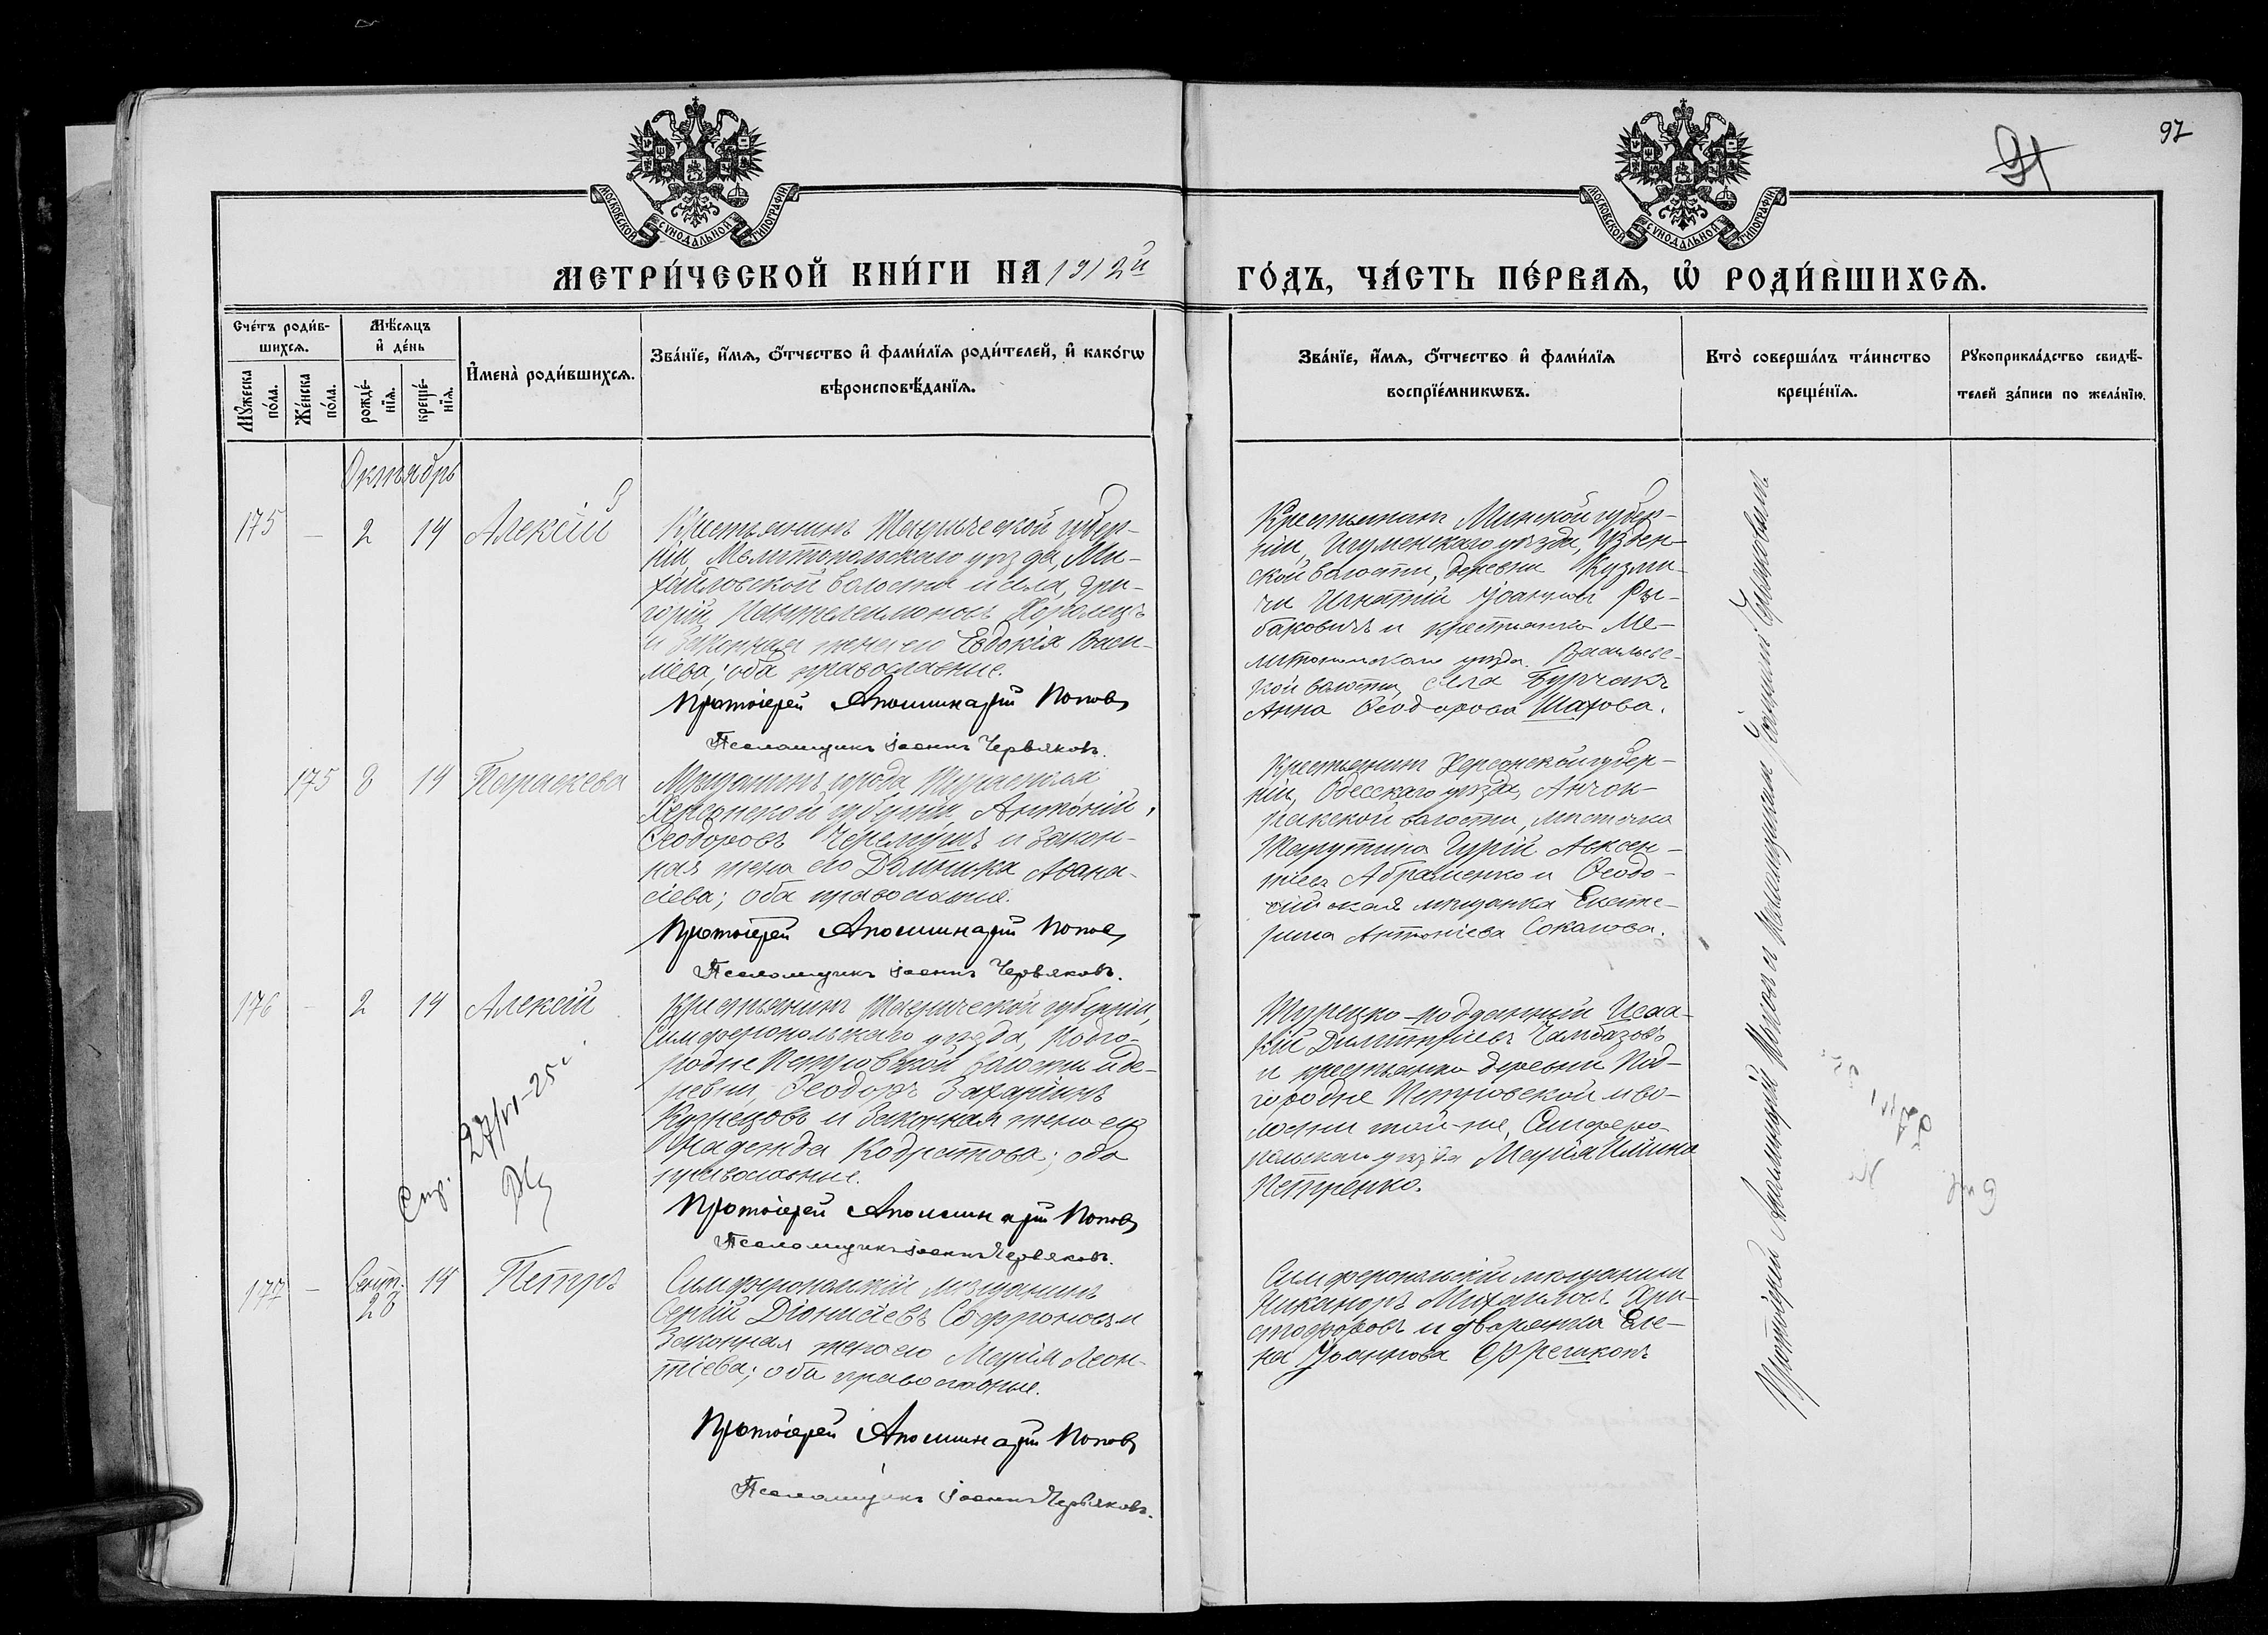 97
91
МОСКОВСКОЙ СУНОДАЛЬНОЙ ТИПОГРАФІИ
МОСКОВСКОЙ СУНОДАЛЬНОЙ ТИПОГРАФІИ
МЕТРИ́ЧЕСКОЙ КНИ́ГИ НА 1912й ГО́ДЪ, ЧА́СТЬ ПЕ́РВАѦ, Ѡ҆ РОДИ́ВШИХСѦ.
Сче́тъ роди́в-
шихсѧ.
Мꙋ́жеска
по́ла.
Же́нска
по́ла.
Мѣ́сѧцъ
и҆ де́нь
рожде́-
нїѧ.
креще́-
нїѧ.
И҆мена̀ роди́вшихсѧ.
Зва́нїе, и҆́мѧ, ѻ҆́тчество и҆ фами́лїѧ роди́телей, и҆ како́гѡ
вѣроисповѣ́данїѧ.
Зва́нїе, и҆́мѧ, ѻ҆́тчество и҆ фами́лїѧ
воспрїе́мникѡвъ.
Кто̀ соверша́лъ та́инство
креще́нїѧ.
Рꙋкоприкла́дство свидѣ́-
телей за́писи по жела́нїю.
Октябрь
175 – 2 14 Алексій
Крестьянинъ Таврической губер-
ніи, Мелитопольскаго уѣзда, Ми-
хайловской волости и села, Гри-
горій Пантелеимоновъ Хоролецъ
и законная жена его Евдокія Вией-
міева; оба православные.
Протоіерей Аполлинарій Поповъ
Псаломщикъ Іоаннъ Червяковъ.
Крестьянинъ Минской губер-
ніи, Игуменскаго уѣзда, Узден-
ской волости, деревни Кузми-
чи Игнатій Іоанновъ Ры-
баковичъ и крестьянка Ме-
литопольскаго уѣзда. Васильев-
кой волости, села Бурчакъ
Анна Ѳеодорова Шахова.
175 8 14 Параскева
Мѣщанинъ города Тирасполя
Херсонской губерніи, Антоній
Ѳеодоровъ Черемухъ и закон-
ная жена его Домника Аѳана-
сіева; оба православные.
Протоіерей Аполлинарій Поповъ
Псаломщикъ Іоаннъ Червяковъ.
Крестьянинъ Херсонской губер-
ніи, Одесскаго уѣзда, Анчок-
ракской волости, мѣстечка
Тарутина Гурій Авксен-
тіевъ Абраменко и Ѳеодо-
сійская мѣщанка Екате-
рина Антоніева Соколова.
176 – 2 14 Алексій
Спр. 27/VI-25 г.
Крестьянинъ Таврической губерніи,
Симферопольскаго уѣзда, Подго-
родне Петровской волости и де-
ревни, Ѳеодоръ Захаріинъ
Кузнецовъ и законная жена его
Надежда Кодратова; оба
православные.
Протоіерей Аполлинарій Поповъ
Псаломщикъ Іоаннъ Червяковъ.
Турецко-подданный Исаа-
кій Димитріевъ Чамбазовъ
и крестьянка деревни Под-
городне Петровской и во-
лости той-же, Симферо-
польскаго уѣзда Марія Ильина
Петренко.
177 – Сент. 26 14 Петръ
Симферопольскій мѣщанинъ
Сергій Діонисіевъ Софроновъ и
законная жена его Марія Леон-
тіева; оба православные.
Протоіерей Аполлинарій Поповъ
Псаломщикъ Іоаннъ Червяковъ.
Симферопольскій мѣщанинъ
Никаноръ Михаиловъ Хри-
стофоровъ и дворянка Еле-
на Іоаннова
Протоіерей Аполлинарій Поповъ съ псаломщикомъ Іоанномъ Червяковымъ